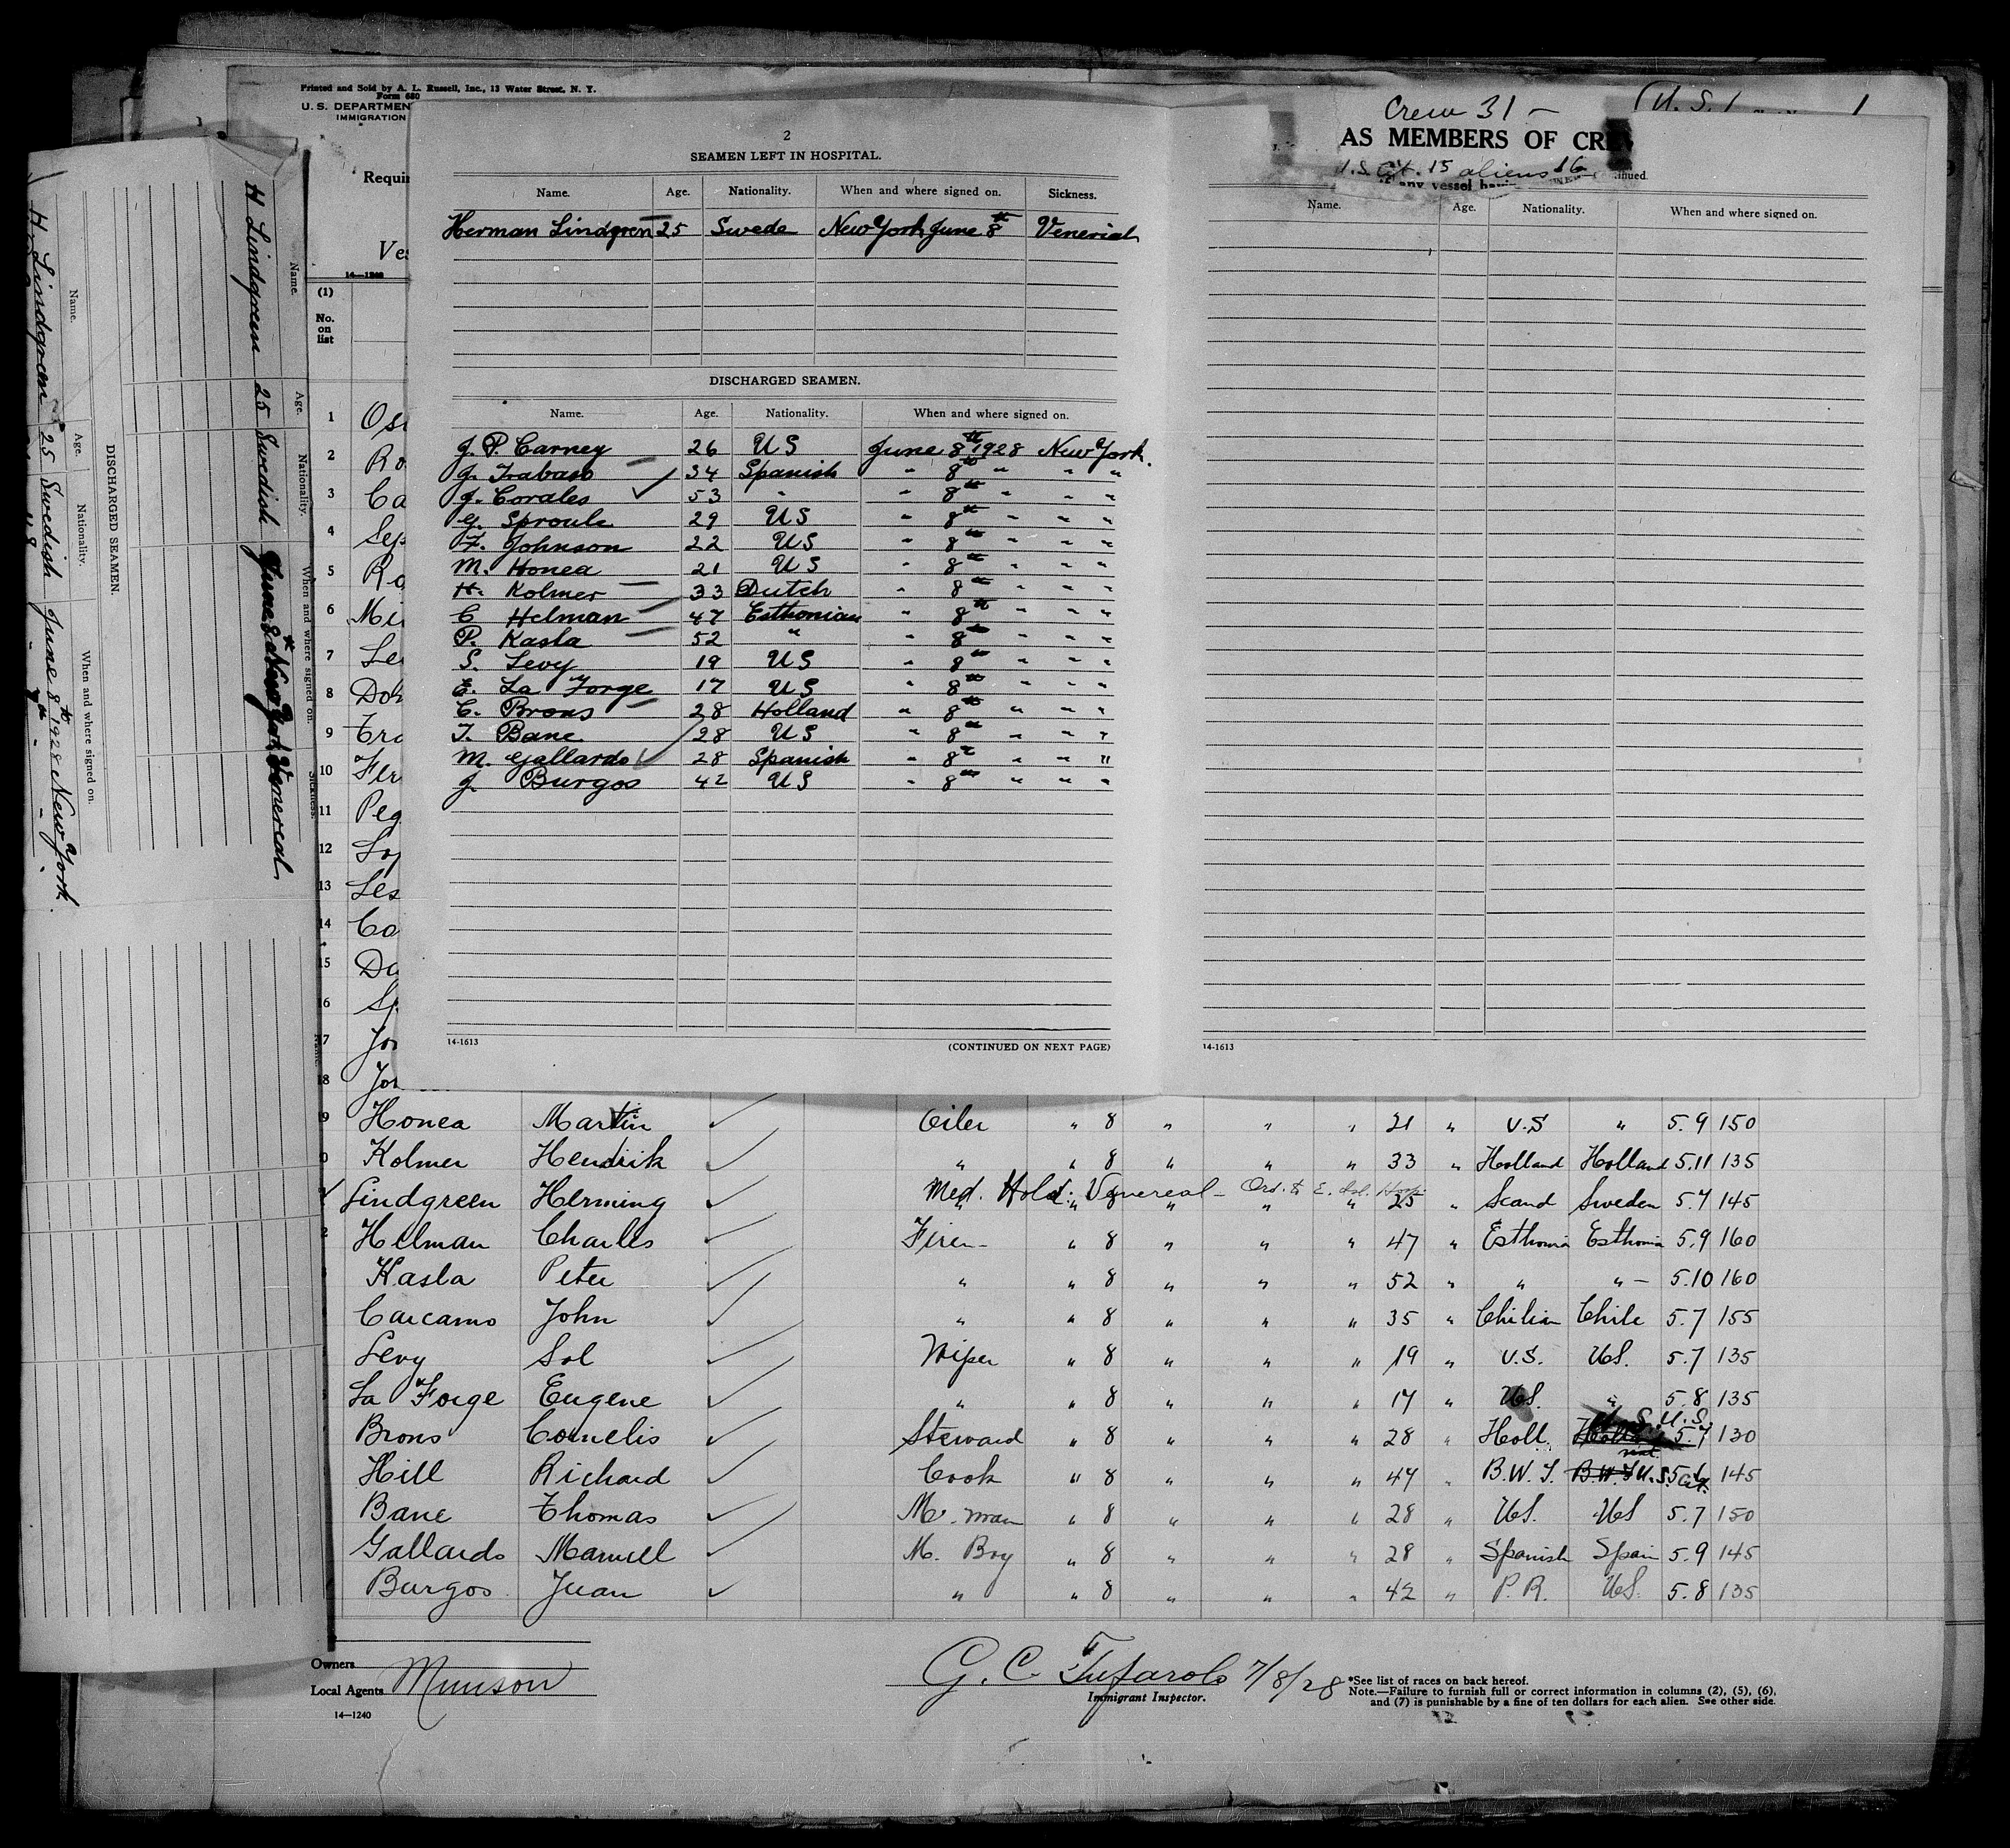 Printed and Sold by A. L. Russell, Inc., 13 Water Street, N. Y.
Form 680
U. S. DEPARTMEN
IMMIGRATION
Requir
Ves
14—1240
(1)
No. on list
Crew 31 —
(U. S.
1
AS MEMBERS OF CRE
U.S. Cit. 15 aliens 16
any vessel
2
SEAMEN LEFT IN HOSPITAL.
Name. Age. Nationality. When and where signed on. Sickness.
Herman Lindgren 25 Swede New York June 8th Venerial
DISCHARGED SEAMEN.
Name. Age. Nationality. When and where signed on.
J. P. Carney 26 US June 8th 1928 New York.
J. Trabaso 34 Spanish " 8th " " "
J. Corales 53 " " 8th " " "
G. Sproule 29 US " 8th " " "
F. Johnson 22 US " 8th " " "
M. Honea 21 US " 8th " " "
H. Kolmer 33 Dutch " 8th " " "
C Helman 47 Esthonian " 8th " " "
P. Kasla 52 " " 8th " " "
S. Levy 19 US " 8th " " "
E. La Forge 17 US " 8th " " "
C. Brons 28 Holland " 8th " " "
T. Bane 28 US " 8th " " "
M. Gallardo 28 Spanish " 8th " " "
J. Burgos 42 US " 8th " " "
14-1613
(CONTINUED ON NEXT PAGE)
Name. Age. Nationality. When and where signed on.
14-1613
Name. Age. Nationality. When and where signed on. Sickness.
H Lindgreen 25 Swedish June 8th New York Venereal
DISCHARGED SEAMEN.
Name. Age. Nationality. When and where signed on.
H. Lindgreen 25 Swedish June 8th 1928 New York
1 Os
2 Ro
3 Ca
4 Sep
5 Ro
6 Mi
7 Le
8 Dor
9 Cro
10 Fer
11 Peg
12 Lop
13 Les
14 Co
15 Da
16 Sp
7 Jo
8 Jo
9 Honea Martin Oiler " 8 " " " 21 " U.S " 5.9 150
0 Kolmer Hendrik " " 8 " " " 33 " Holland Holland 5.11 135
Med. Hold: Venereal — Ord. to E. Isl. Hosp.
Lindgreen Herming " " 8 " " " 25 " Scand Sweden 5.7 145
2 Helman Charles Firem- " 8 " " " 47 " Esthonia Esthonia 5.9 160
Kasla Peter " " 8 " " " 52 " " " — 5.10 160
Carcamo John " " 8 " " " 35 " Chilian Chile 5.7 155
Levy Sol Wiper " 8 " " " 19 " U.S. US. 5.7 135
La Forge Eugene " " 8 " " " 17 " US. " 5.8 135
Brons Cornelis Steward " 8 " " " 28 " Holl. U.S. 5.7 130
Hill Richard Cook " 8 " " " 47 " B.W.I. B.W.I U.S. Cit. 5.6 145
Bane Thomas M. man " 8 " " " 28 " US. US 5.7 150
Gallardo Manuel M. Boy " 8 " " " 28 " Spanish Spain 5.9 145
Burgos Juan " " 8 " " " 42 " P. R. US. 5.8 135
Owners
Local Agents Munson
14—1240
G. C. Tufarolo 7/8/28
Immigrant Inspector.
*See list of races on back hereof.
Note.—Failure to furnish full or correct information in columns (2), (5), (6),
and (7) is punishable by a fine of ten dollars for each alien. See other side.